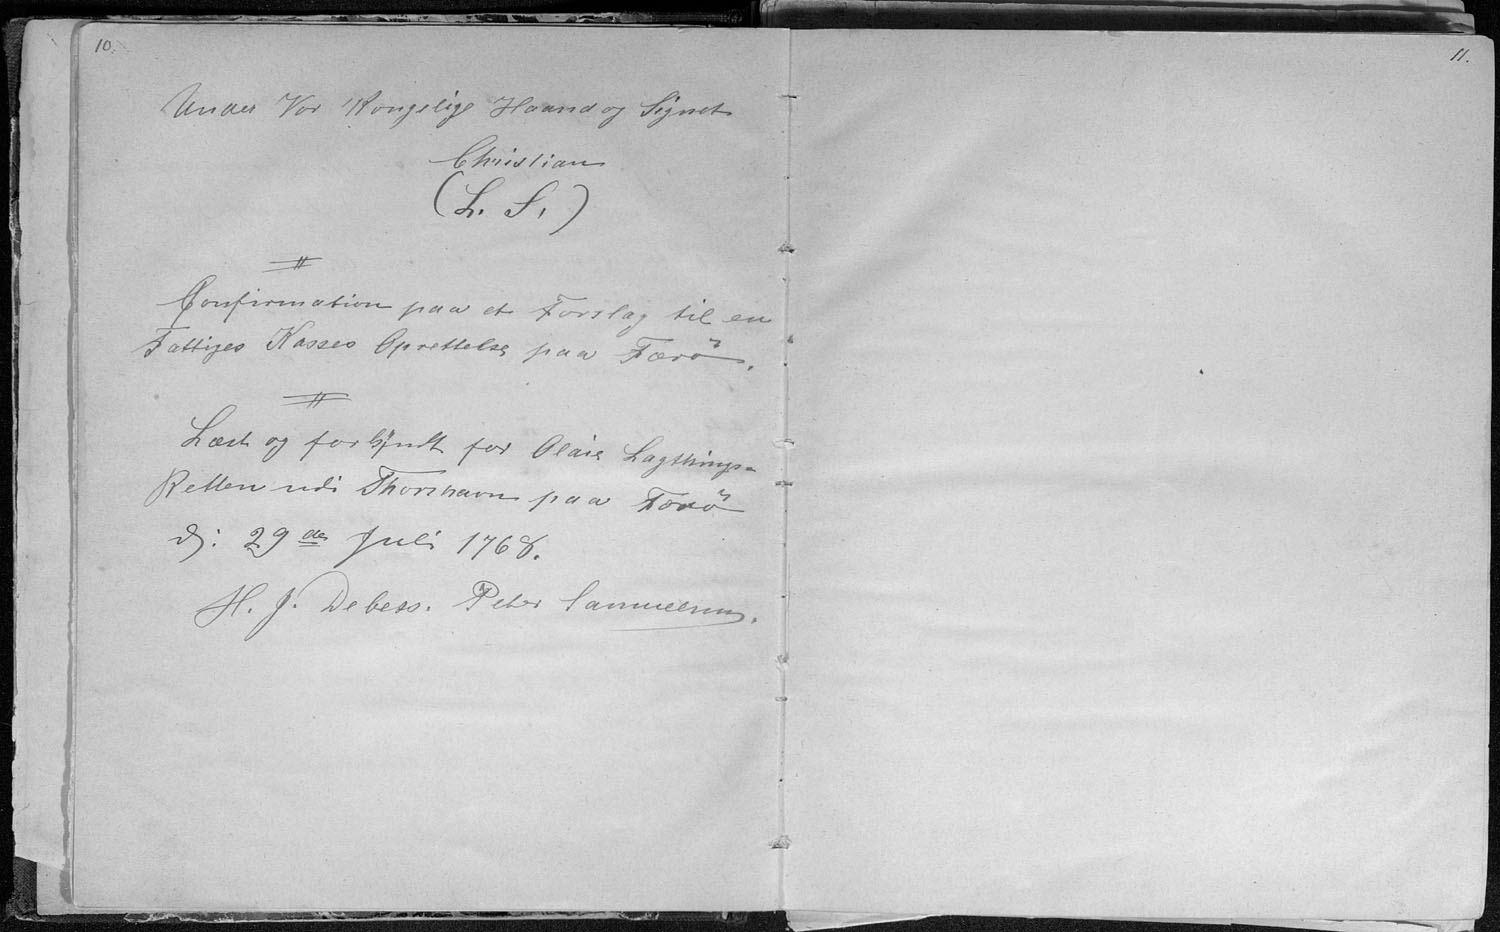 10.
Under Vor Kongelige Haand og Signet
Christian
(L. S.)
Confirmation paa et Forslag til en
Fattiges Kasses Oprettelse paa Færö.
Læst og forkyndt for Olaie Lagthings-
Retten udi Thorshavn paa Færö
d: 29de Juli 1768.
H. J. Debess. Peter Samuelsen.
11.